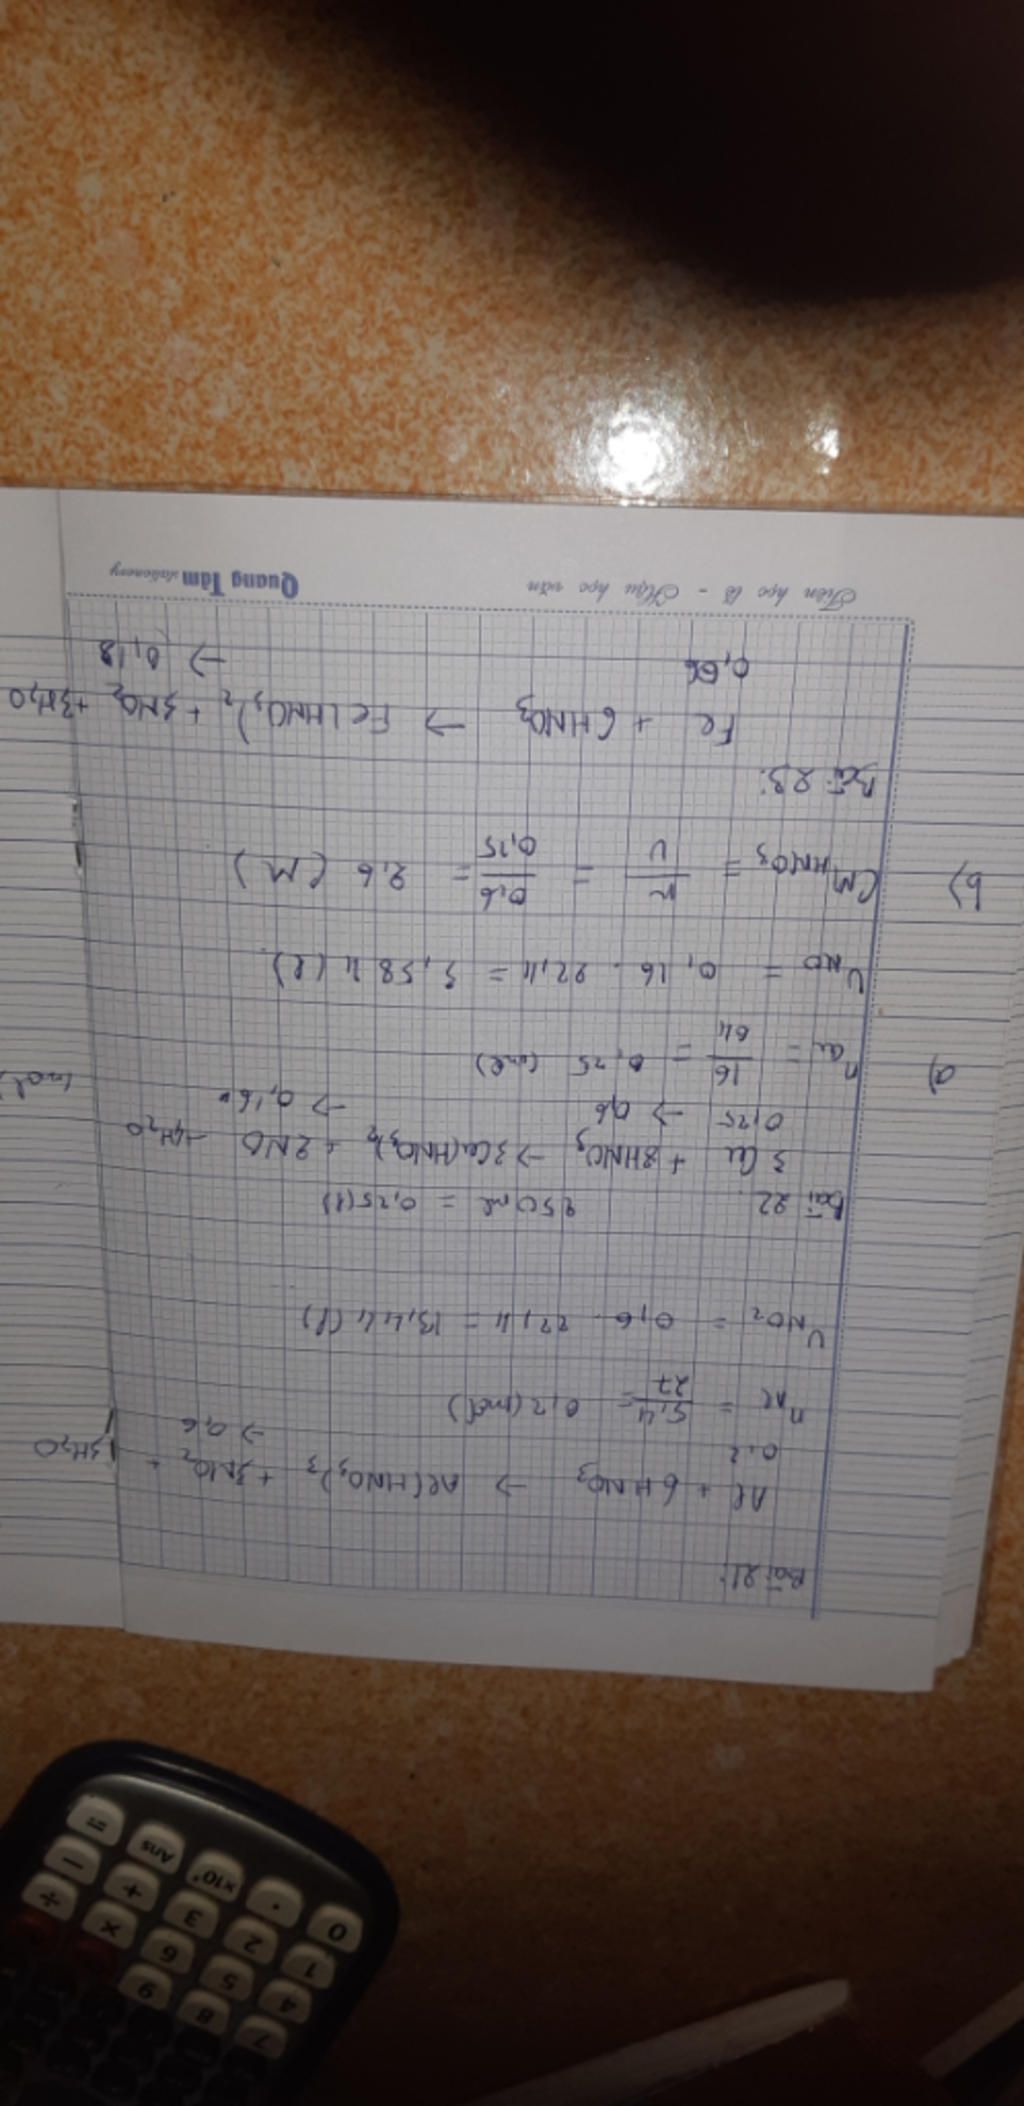 Bài 21:
Al + 6HNO3 → Al(HNO3)3 + 3NO2 + 3H2O
0,2 → 0,6
nAl = 5,4/27 = 0,2 (mol)
VNO2 = 0,6 . 22,4 = 13,44 (l)
Bài 22. 250 ml = 0,25 (l)
3Cu + 8HNO3 → 3Cu(HNO3)2 + 2NO + 4H2O
0,25 → 0,6 → 0,16 (mol)
a) nCu = 16/64 = 0,25 (mol)
VNO = 0,16 . 22,4 = 3,584 (l)
b) CM HNO3 = n/V = 0,6/0,25 = 2,6 (M)
Bài 23:
Fe + 6HNO3 → Fe(HNO3)2 + 3NO2 + 3H2O
→ 0,18
Tiên học lễ - Hậu học văn
Quang Tâm stationery
=
Ans
×10ˣ
.
0
-
+
3
2
1
÷
×
6
5
4
9
8
7